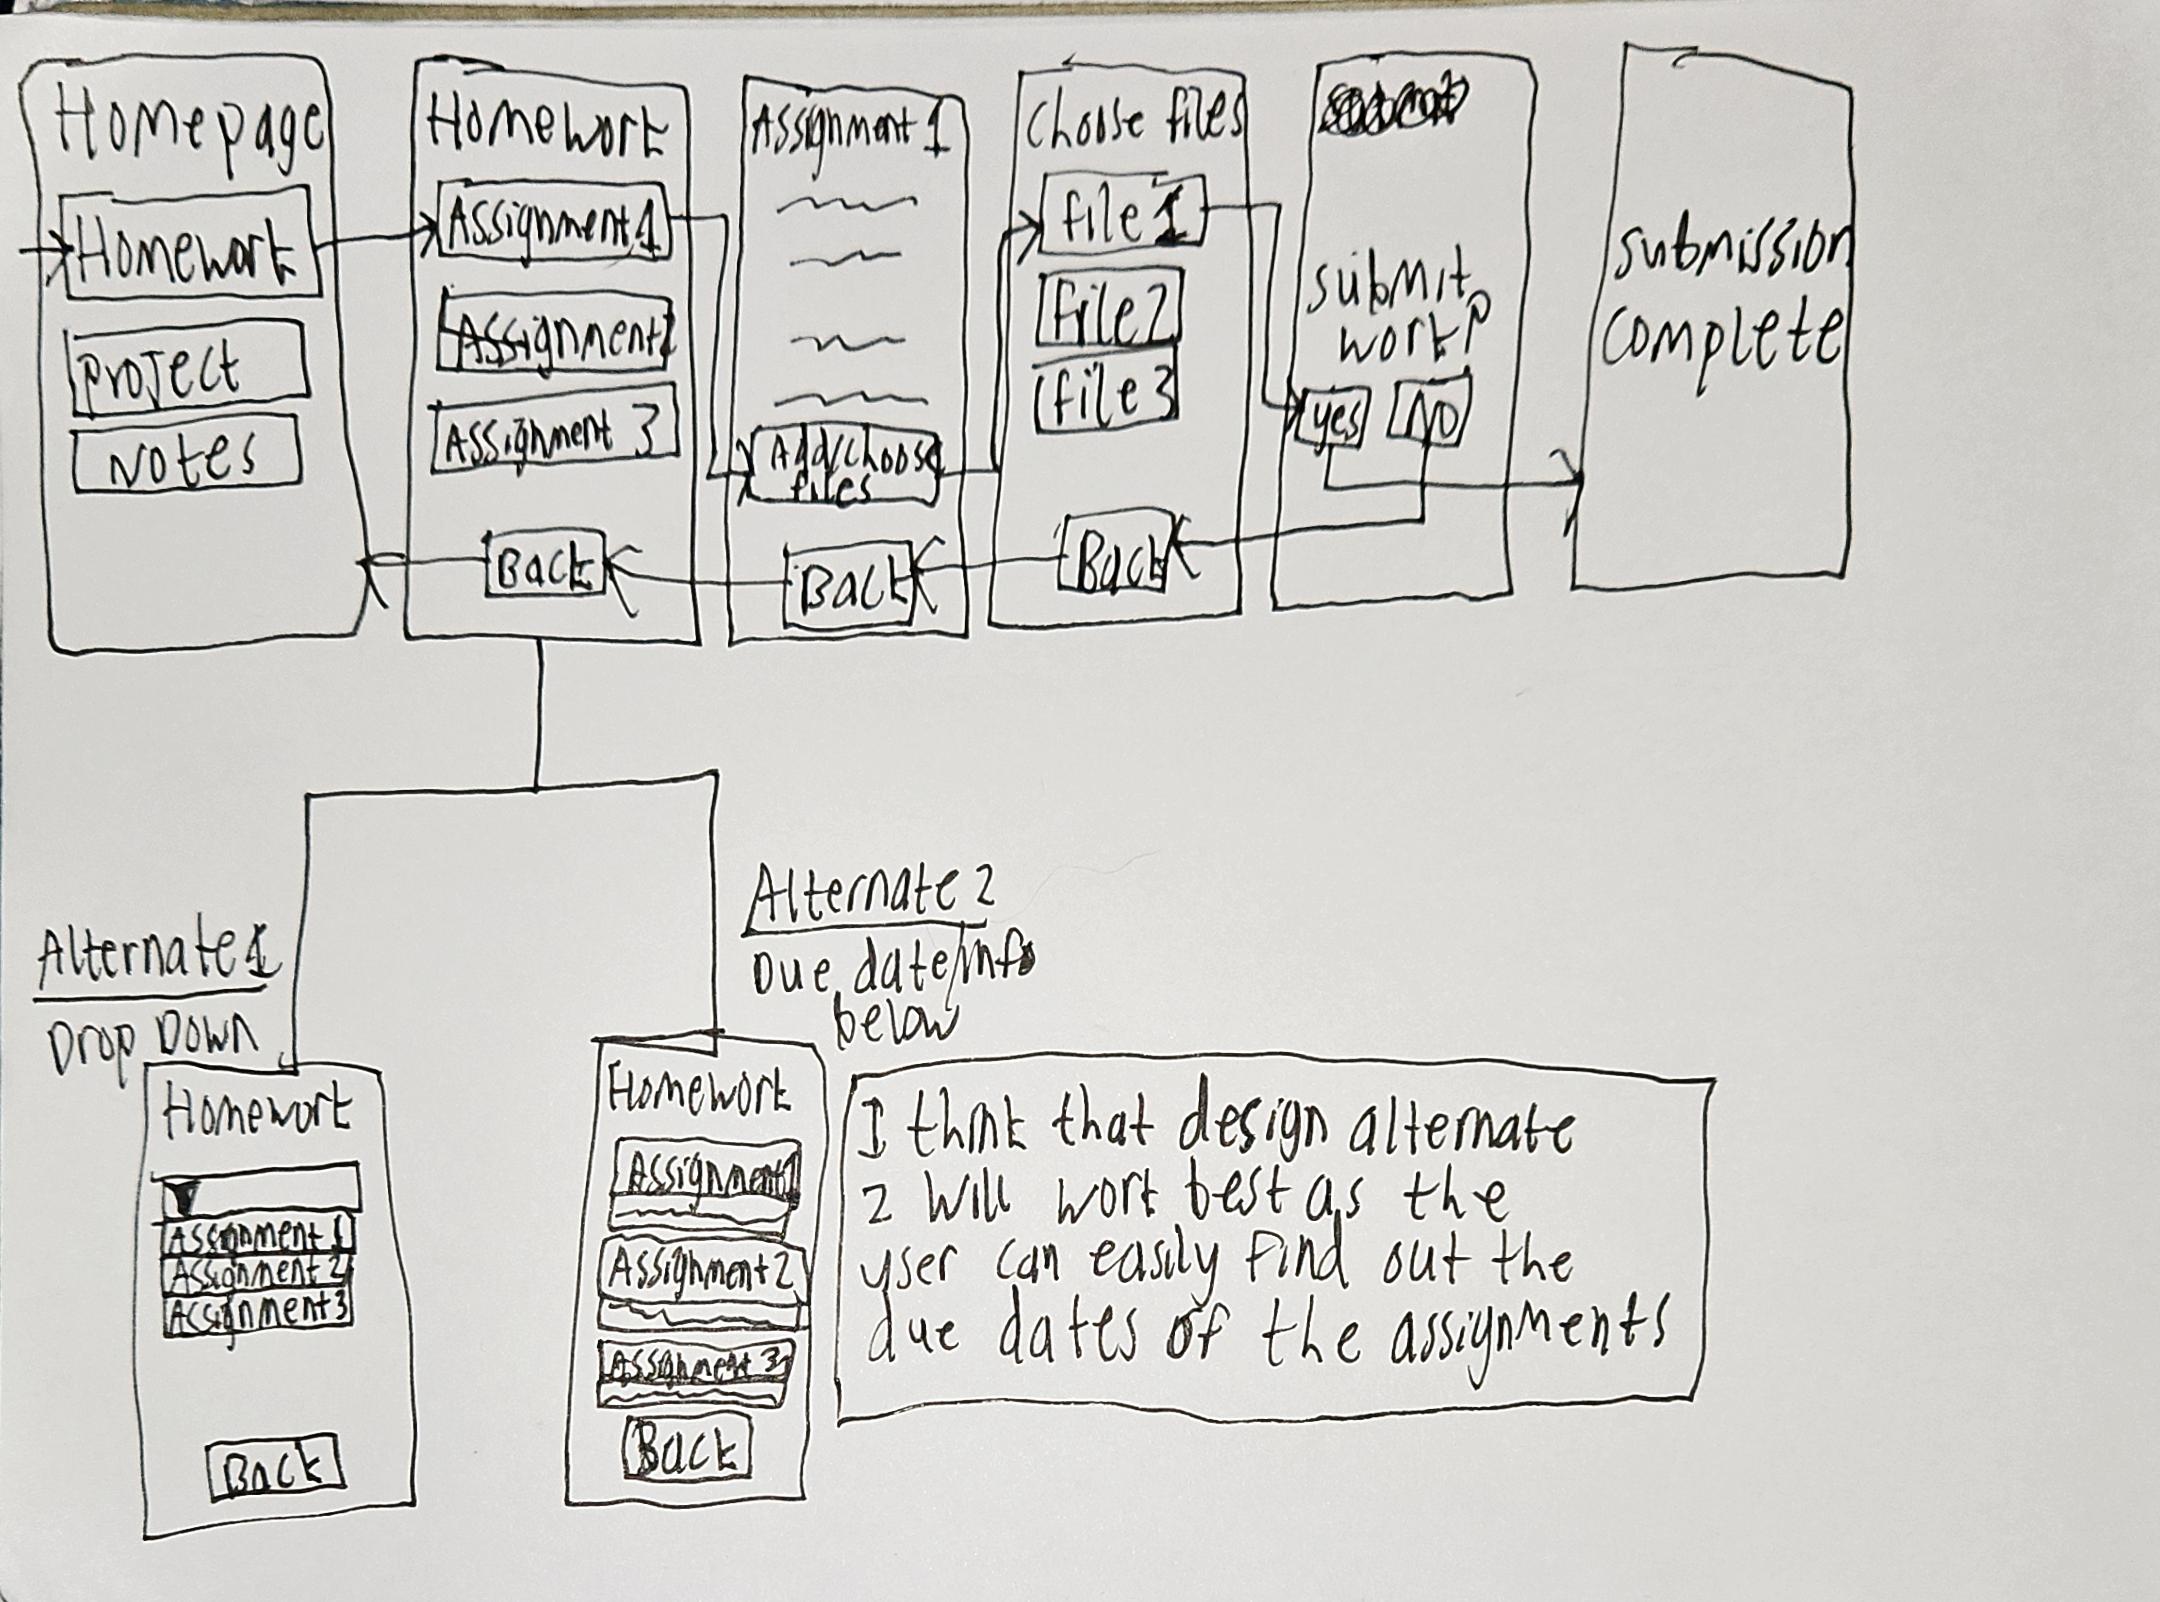 Homepage
Homework
Project
Notes
Homework
Assignment 1
Assignment 2
Assignment 3
Back
Assignment 1
Add/Choose
files
Back
Choose files
file 1
file 2
file 3
Back
submit
work?
yes
No
submission
complete
Alternate 1
Drop Down
Homework
Assignment 1
Assignment 2
Assignment 3
Back
Alternate 2
Due date/info
below
Homework
Assignment 1
Assignment 2
Assignment 3
Back
I think that design alternate
2 will work best as the
user can easily find out the
due dates of the assignments